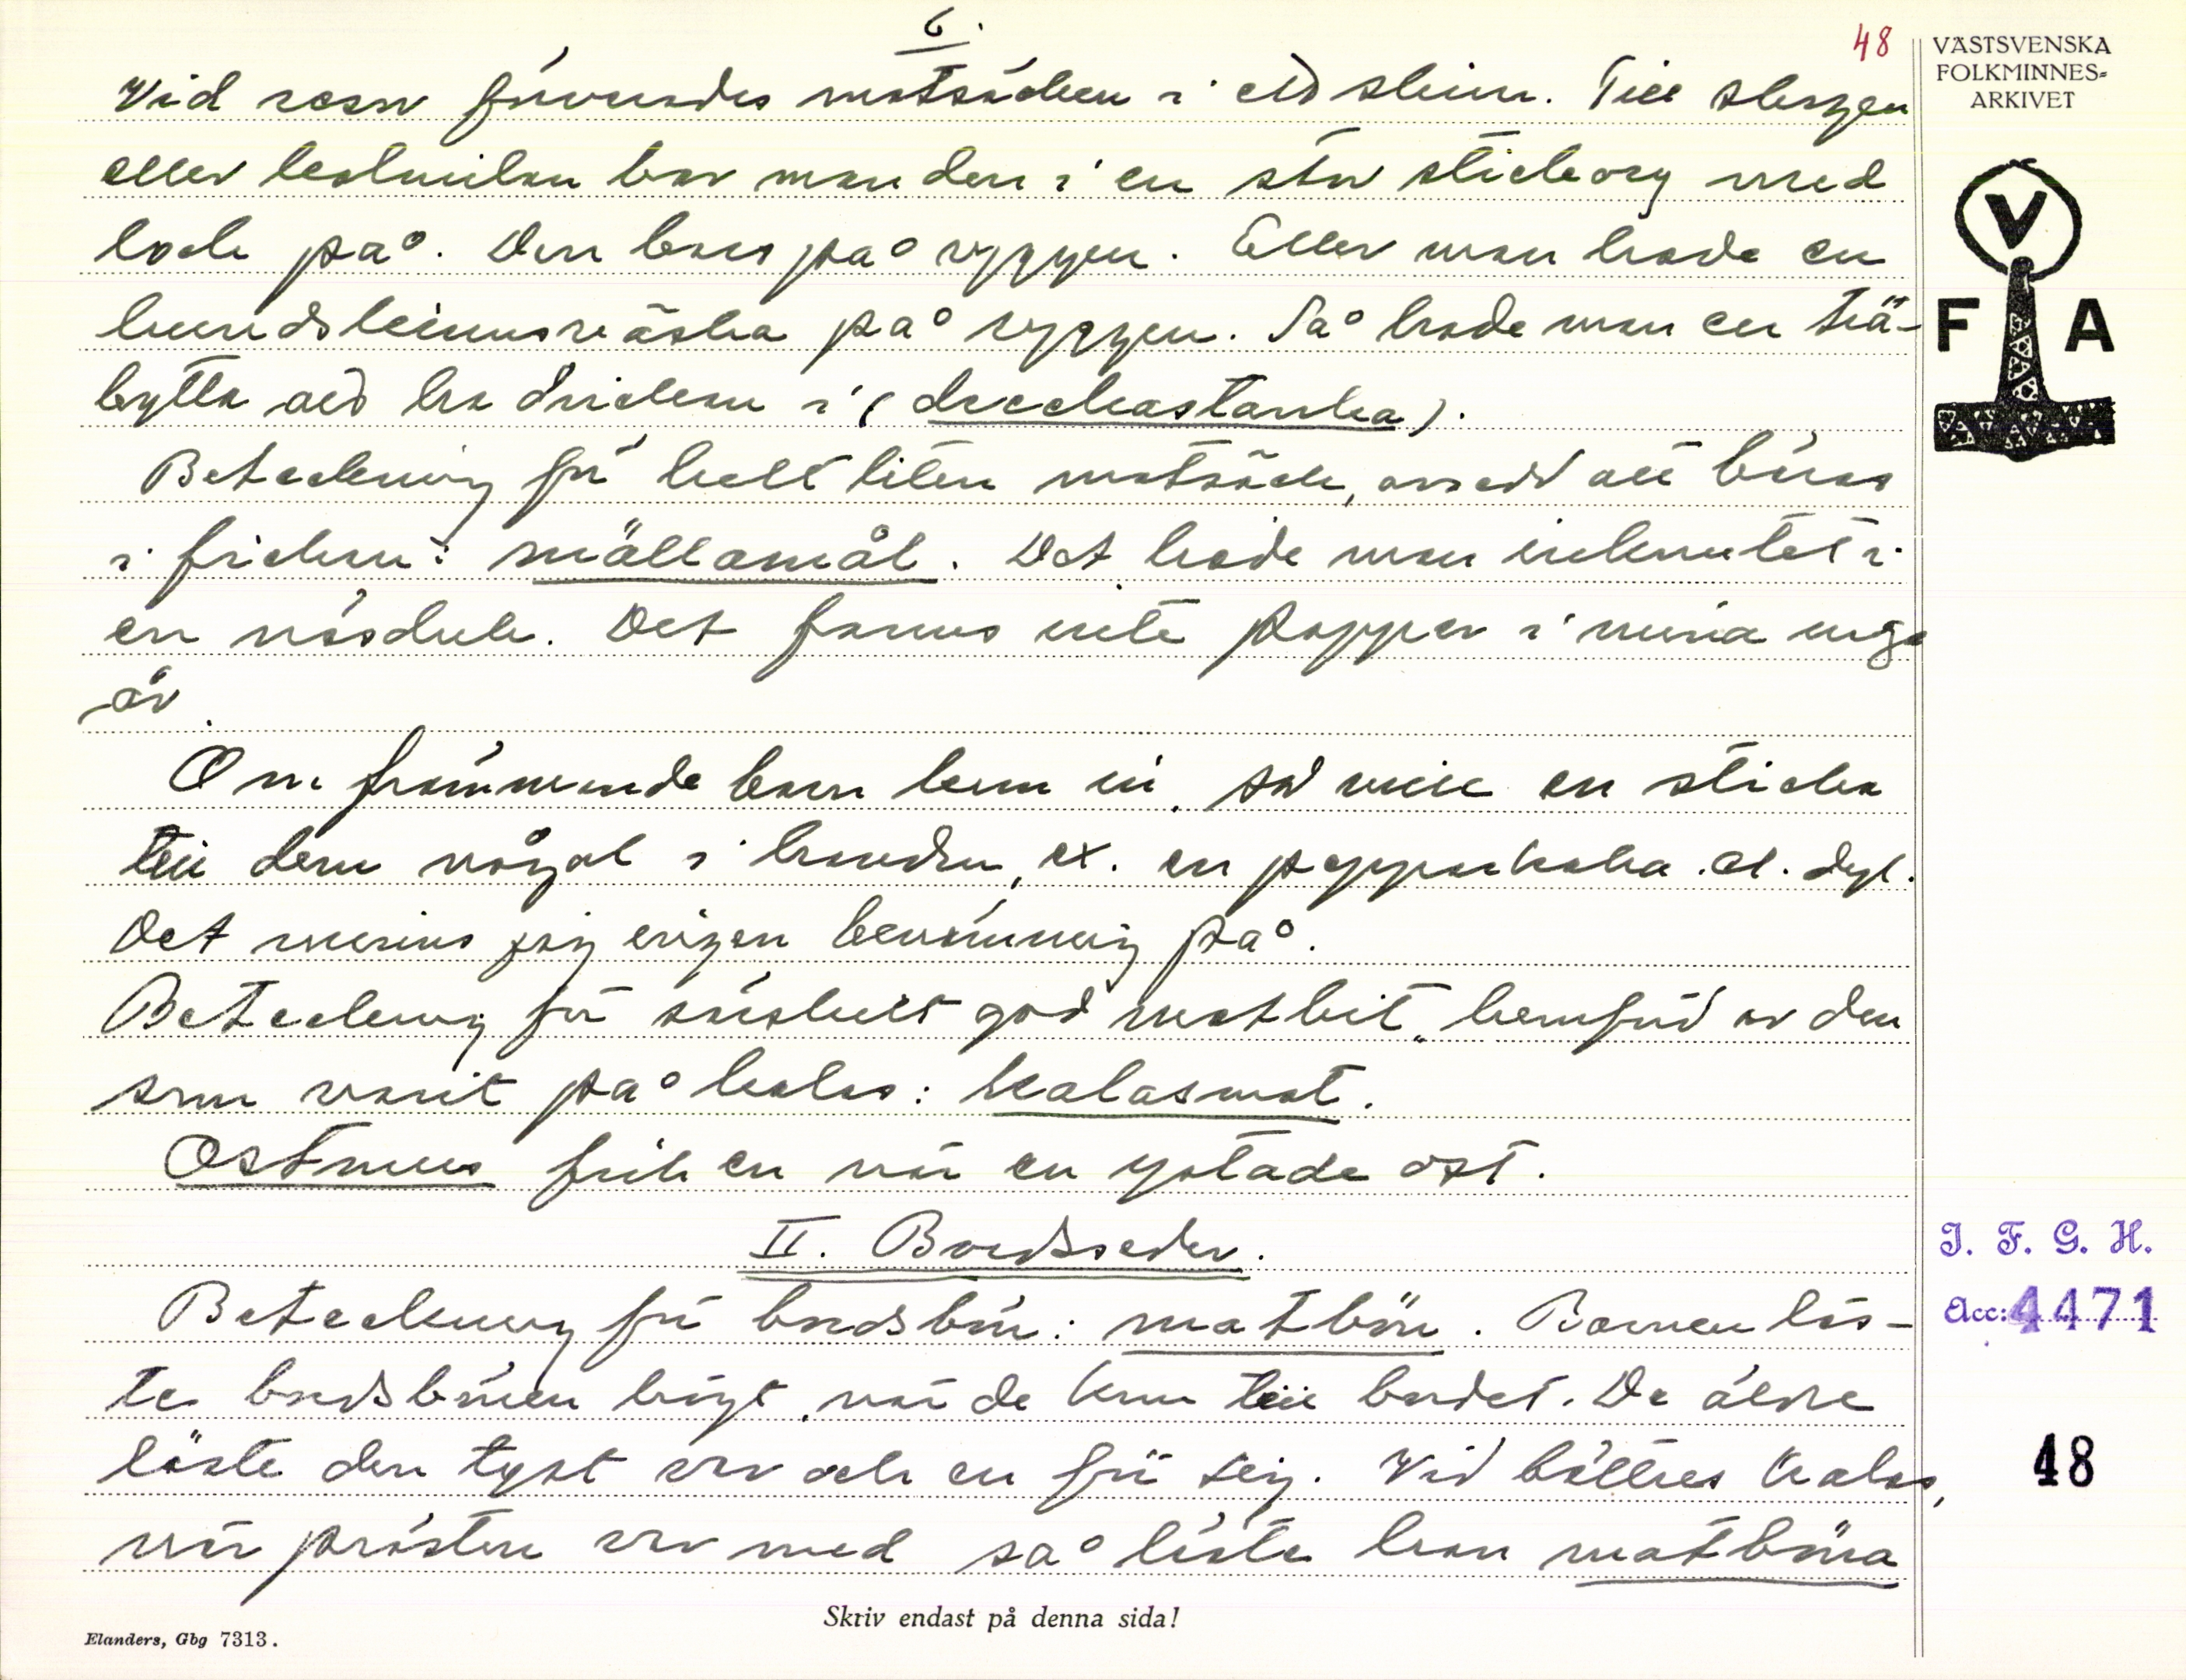 6.
48
VÄSTSVENSKA
FOLKMINNES-
ARKIVET
V
F A
Vid resor förvarades matsäcken i ett skrin. Till skogen
eller kolmilan bar man den i en stor stickorg med
lock på. Den bars på ryggen. Eller man hade en
hundskinnsväska på ryggen. Så hade man en trä-
bytta att ha drickan i (dreckastanka).
Beteckning för helt liten matsäck, avsedd att bäras
i fickan: mällamål. Det hade man inknutet i
en näsduk. Det fanns inte papper i mina unga
år.
Om främmande barn kom in, så till en sticka
till dem något i handen, ex. en pepparkaka el. dyl.
Det minns jag ingen benämning på.
Beteckning för särskilt god matbit, hemförd av den
som varit på kalas: kalasmat.
Ostmus fick en när en ystade ost.
II. Bordsseder.
Beteckning för bordsbön: matbön. Barnen läs-
te bordsbönen högt, när de kom till bordet. De äldre
läste den tyst var och en för sig. Vid bättres kalas,
när prästen var med så läste han matböna
J. F. G. H.
Acc: 4471
48
Skriv endast på denna sida!
Elanders, Gbg 7313.